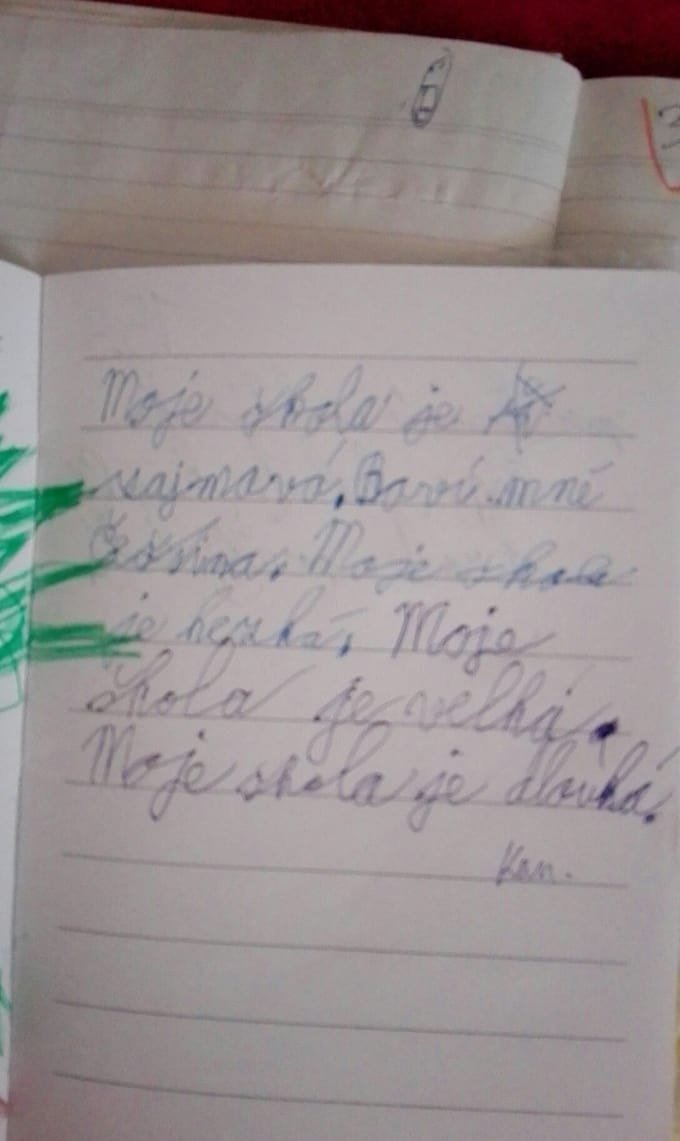 Moje skola je
zajmavá. Baví mně
Čeština. Moje skola
je heská. Moje
škola je velká.
Moje skola je dlouhá.
Kon.
3